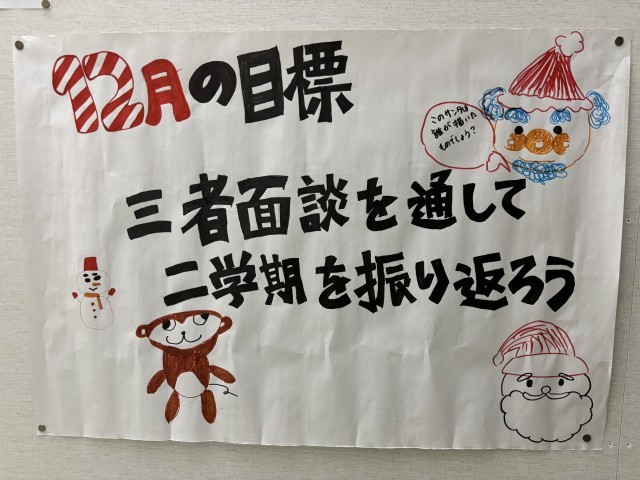 12月の目標
このサンタは
誰が描いた
ものでしょう?
三者面談を通して
二学期を振り返ろう